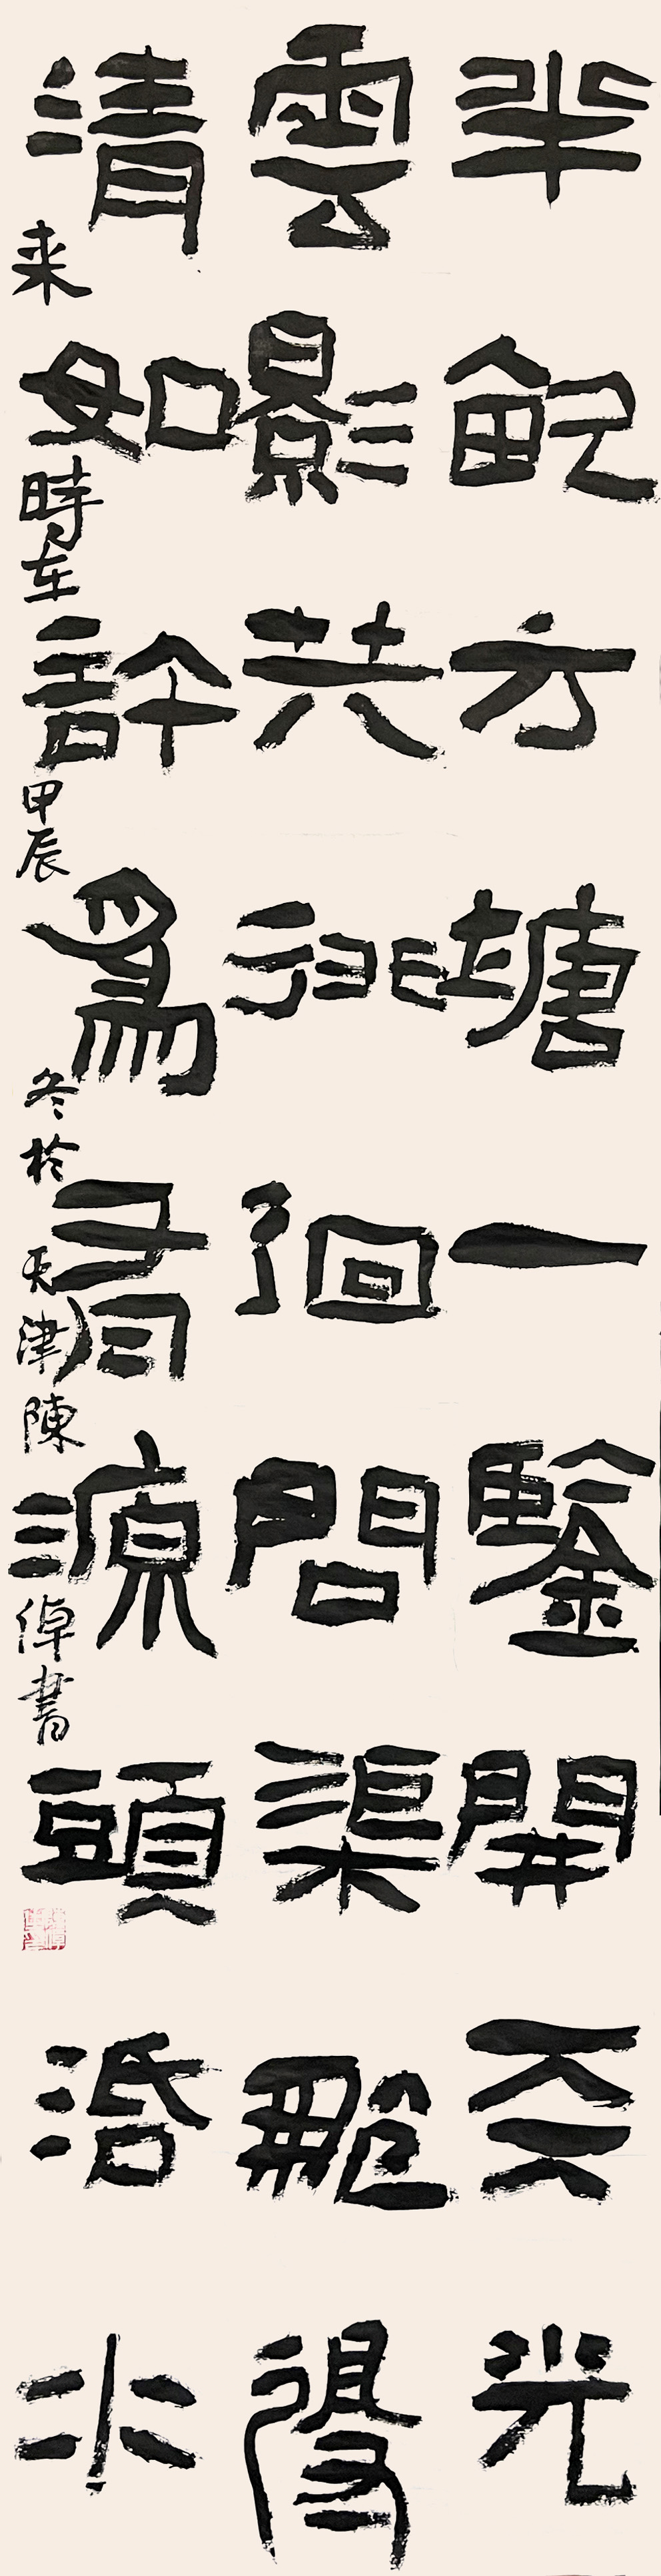 半畝方塘一鑒開天光
雲影共徘徊問渠那得
清如許爲有源頭活水
来時在甲辰冬於天津陳倬書